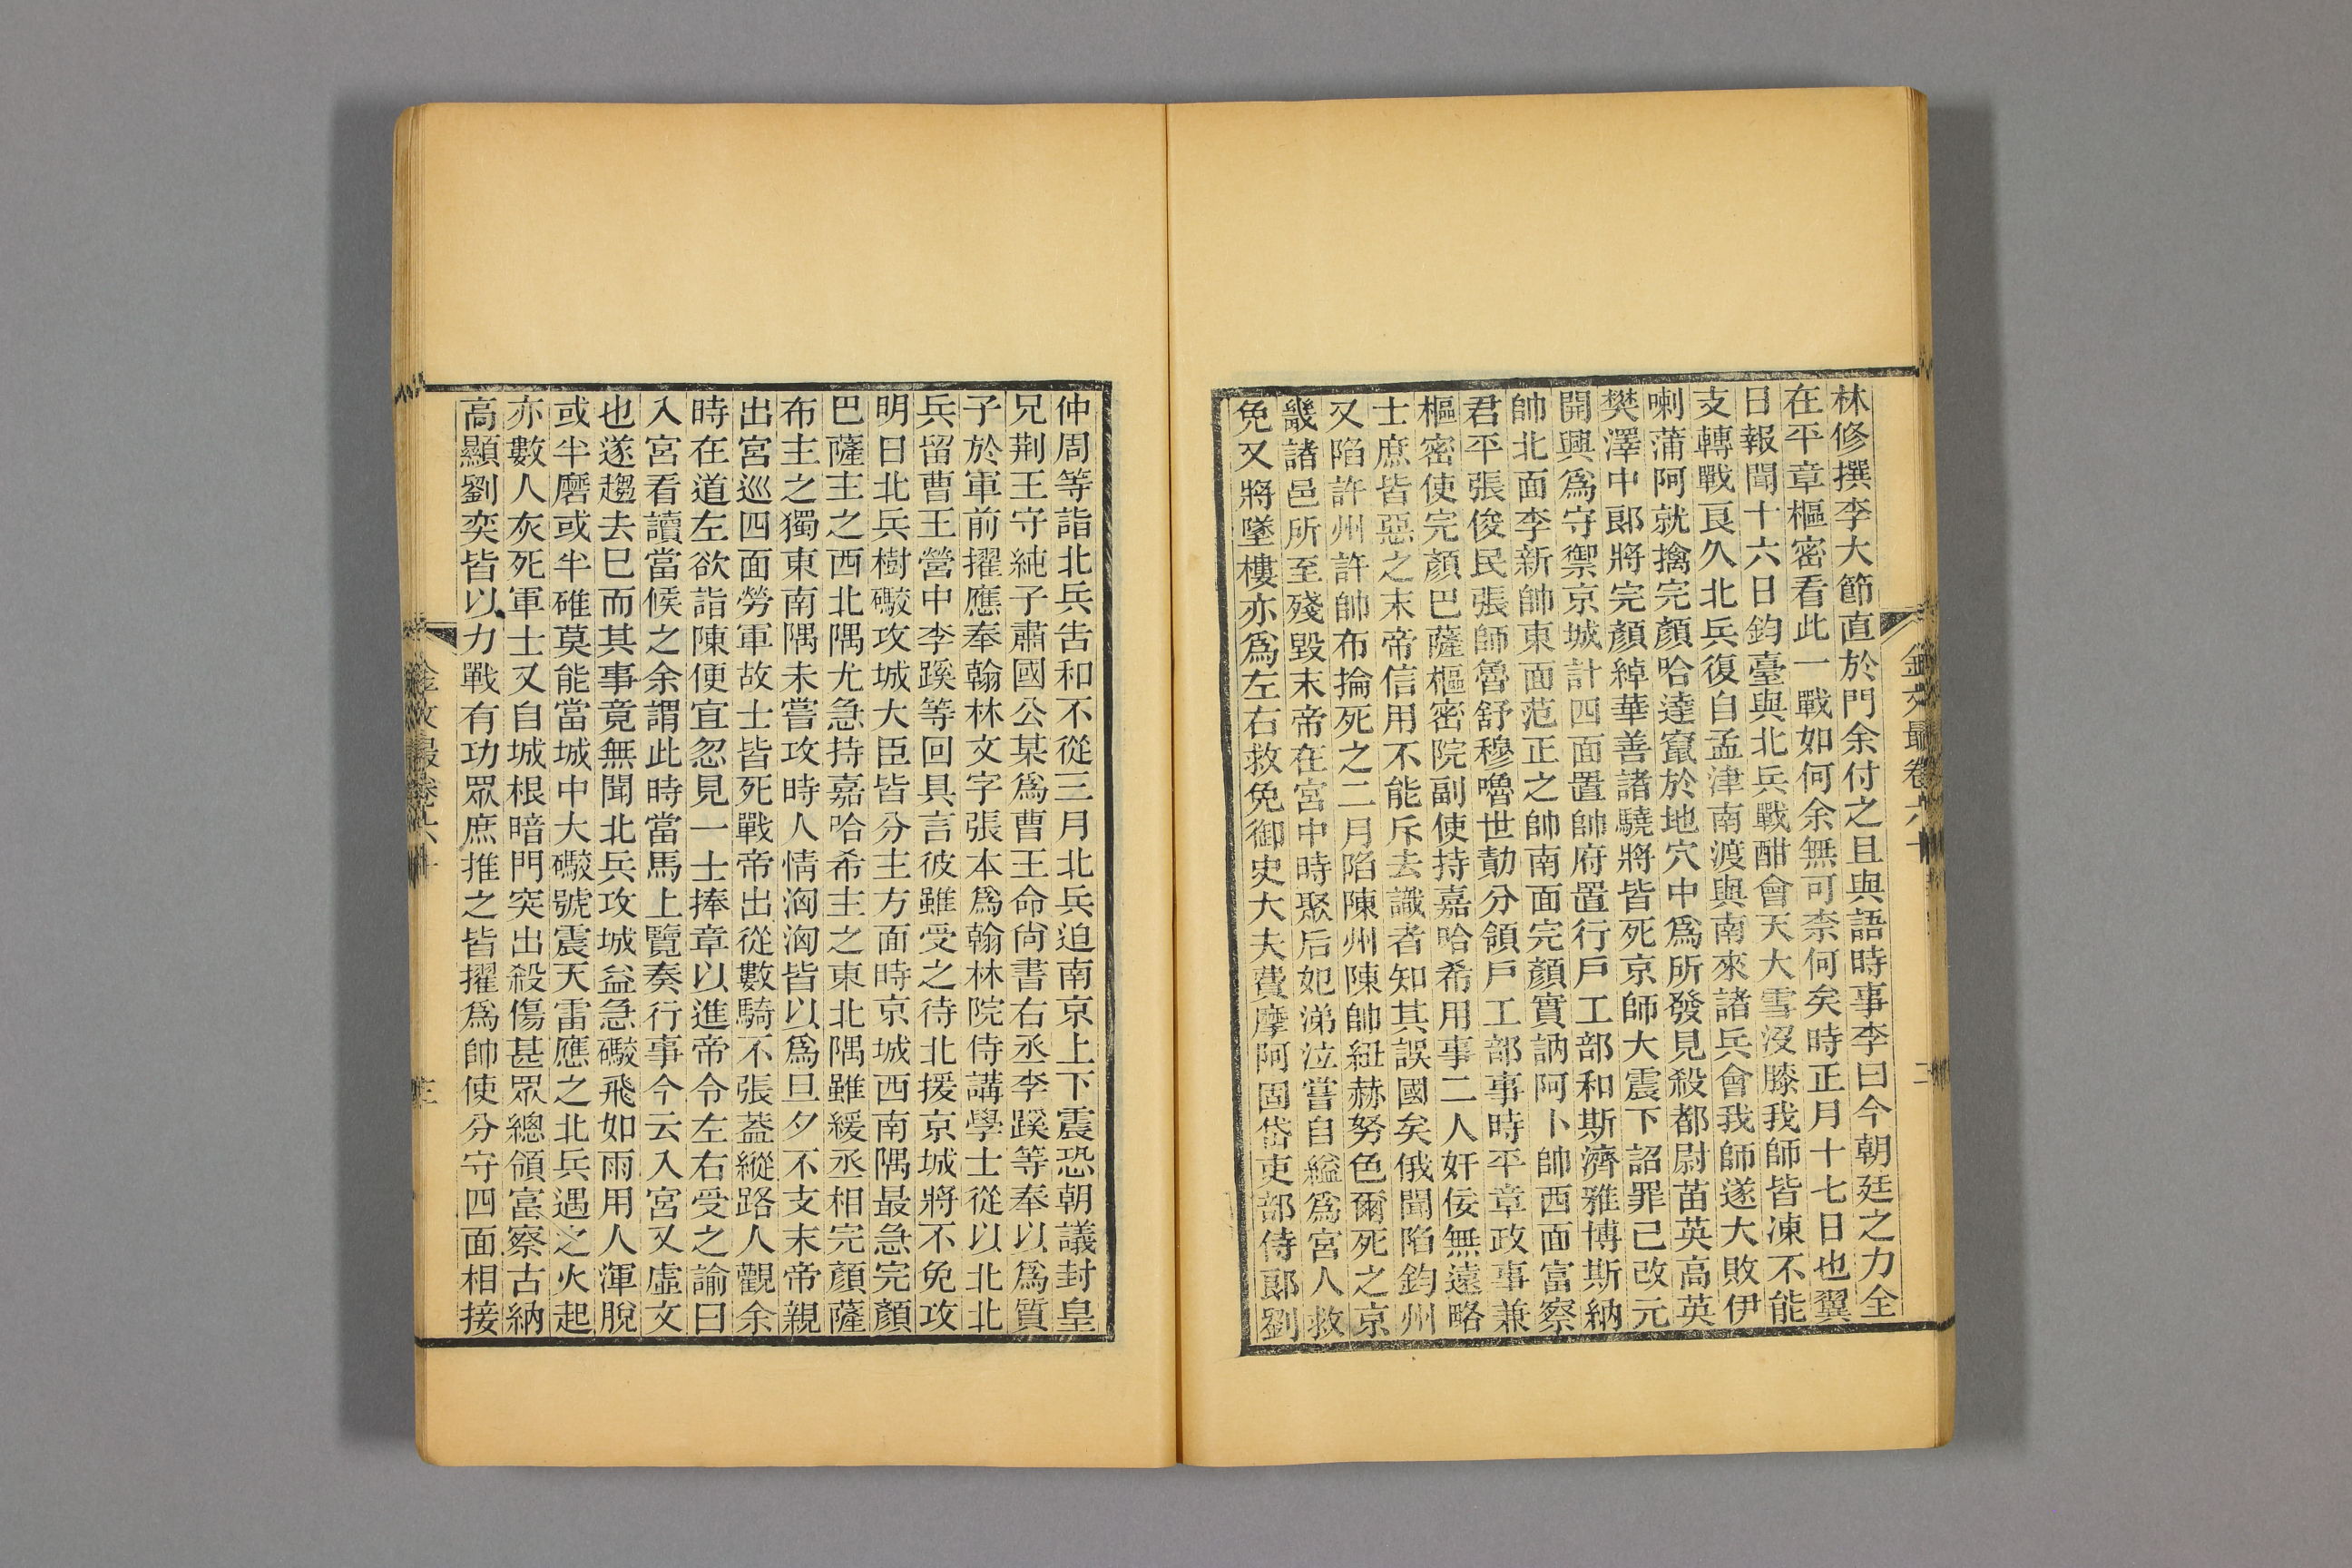 林修撰李大節直於門余付之且與語時事李曰今朝廷之力全
在平章樞密看此一戰如何余無可柰何矣時正月十七日也翼
日報聞十六日鈞臺與北兵戰酣會天大雪沒膝我師皆凍不能
支轉戰良久北兵復自孟津南渡與南來諸兵會我師遂大敗伊
喇蒲阿就擒完顏哈達竄於地穴中爲所發見殺都尉苗英高英
樊澤中郞將完顏綽華善諸驍將皆死京師大震下詔罪己改元
開興爲守禦京城計四面置帥府置行戶工部和斯濟雅博斯納
帥北面李新帥東面范正之帥南面完顏實訥阿卜帥西面富察
君平張俊民張師魯舒穆嚕世勣分領戶工部事時平章政事兼
樞密使完顏巴薩樞密院副使持嘉哈希用事二人奸佞無遠略
士庶皆惡之末帝信用不能斥去識者知其誤國矣俄聞陷鈞州
又陷許州許帥布掄死之二月陷陳州陳帥紐赫努色爾死之京
畿諸邑所至殘毀末帝在宮中時聚后妃涕泣嘗自縊爲宮人救
免又將墜樓亦爲左右救免御史大夫費摩阿固岱吏部侍郞劉
金文最卷六十
二
仲周等詣北兵告和不從三月北兵迫南京上下震恐朝議封皇
兄荆王守純子肅國公某爲曹王命尙書右丞李蹊等奉以爲質
子於軍前擢應奉翰林文字張本爲翰林院侍講學士從以北北
兵留曹王營中李蹊等回具言彼雖受之待北援京城將不免攻
明日北兵樹礮攻城大臣皆分主方面時京城西南隅最急完顏
巴薩主之西北隅尤急持嘉哈希主之東北隅雖緩丞相完顏薩
布主之獨東南隅未嘗攻時人情洶洶皆以爲旦夕不支末帝親
出宮巡四面勞軍故士皆死戰帝出從數騎不張葢縱路人觀余
時在道左欲詣陳便宜忽見一士捧章以進帝令左右受之諭曰
入宮看讀當候之余謂此時當馬上覽奏行事今云入宮又虛文
也遂趨去已而其事竟無聞北兵攻城益急礮飛如雨用人渾脫
或半磨或半碓莫能當城中大礮號震天雷應之北兵遇之火起
亦數人灰死軍士又自城根暗門突出殺傷甚眾總領富察古納
高顯劉奕皆以力戰有功眾庶推之皆擢爲帥使分守四面相接
金文最卷六十
三